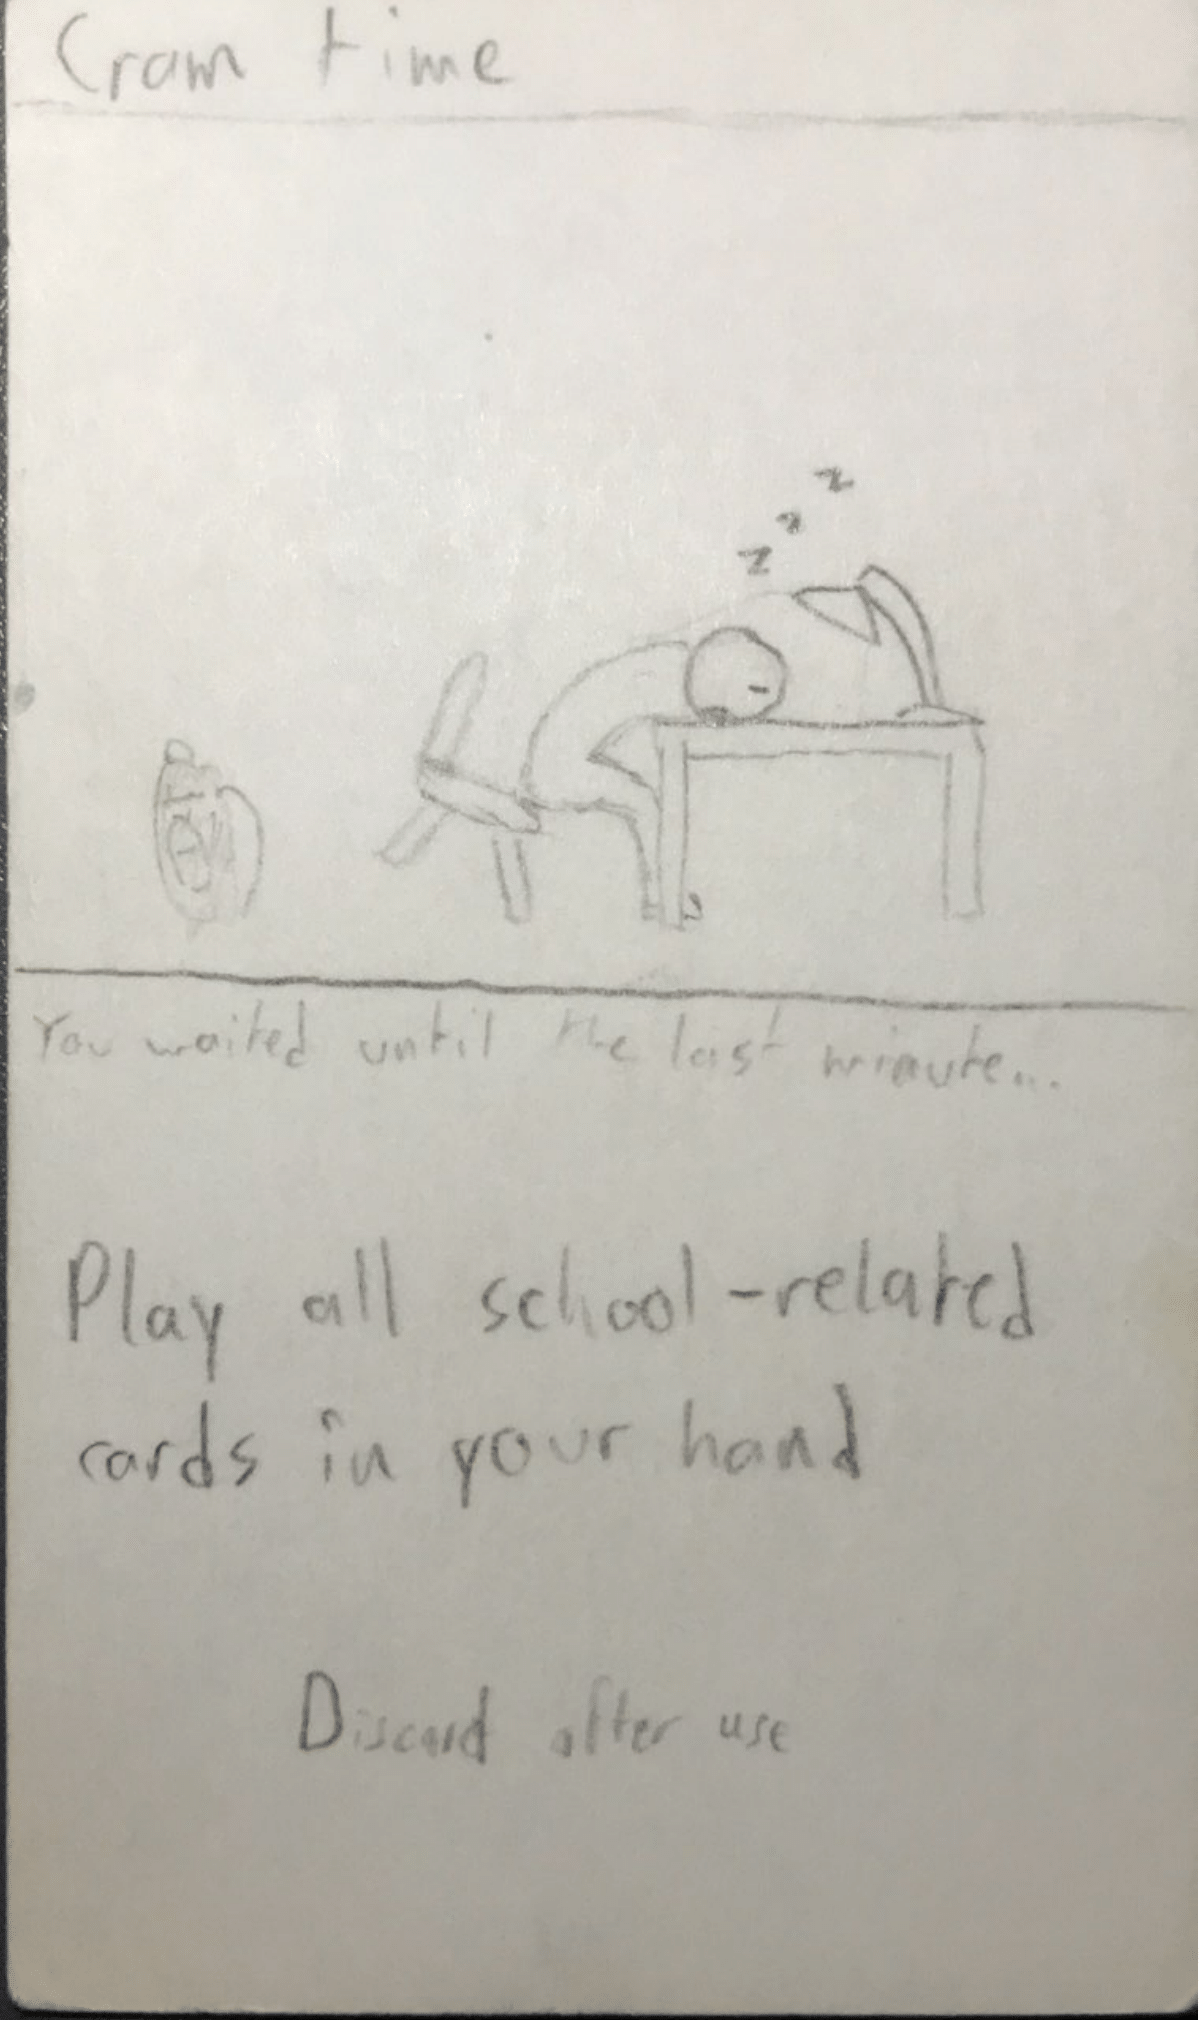 Cram time
z
z
z
You waited until the last minute...
Play all school-related
cards in your hand
Discard after use